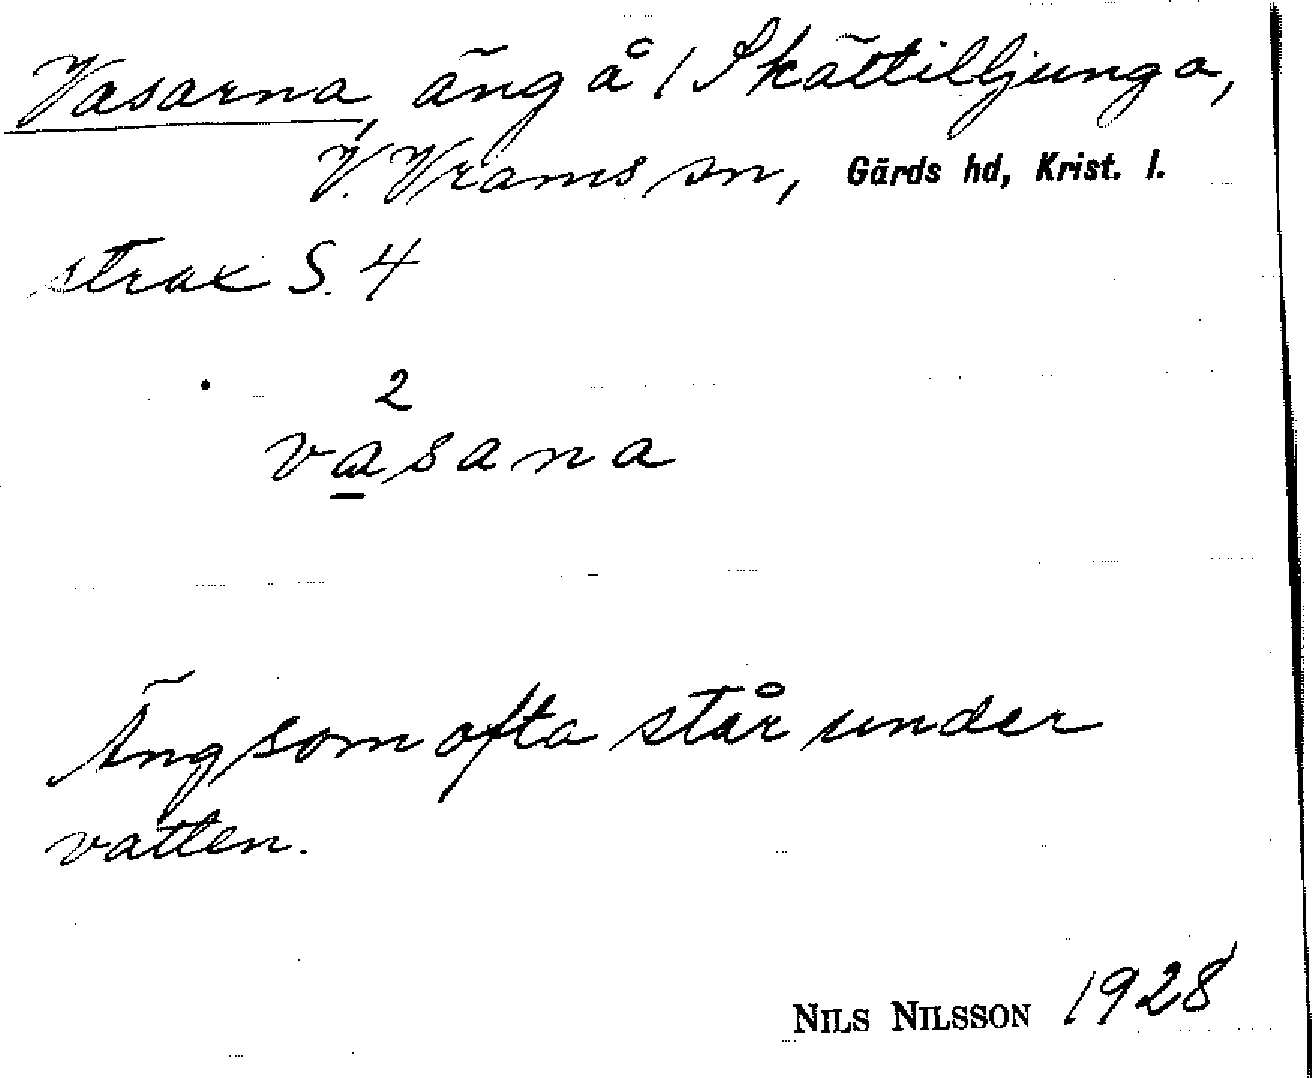 Vasarna, äng å 1 Skättilljunga,
V. Vrams sn, Gärds hd, Krist. l.
strax S. 4
2
vasana
Äng som ofta står under
vatten.
NILS NILSSON 1928